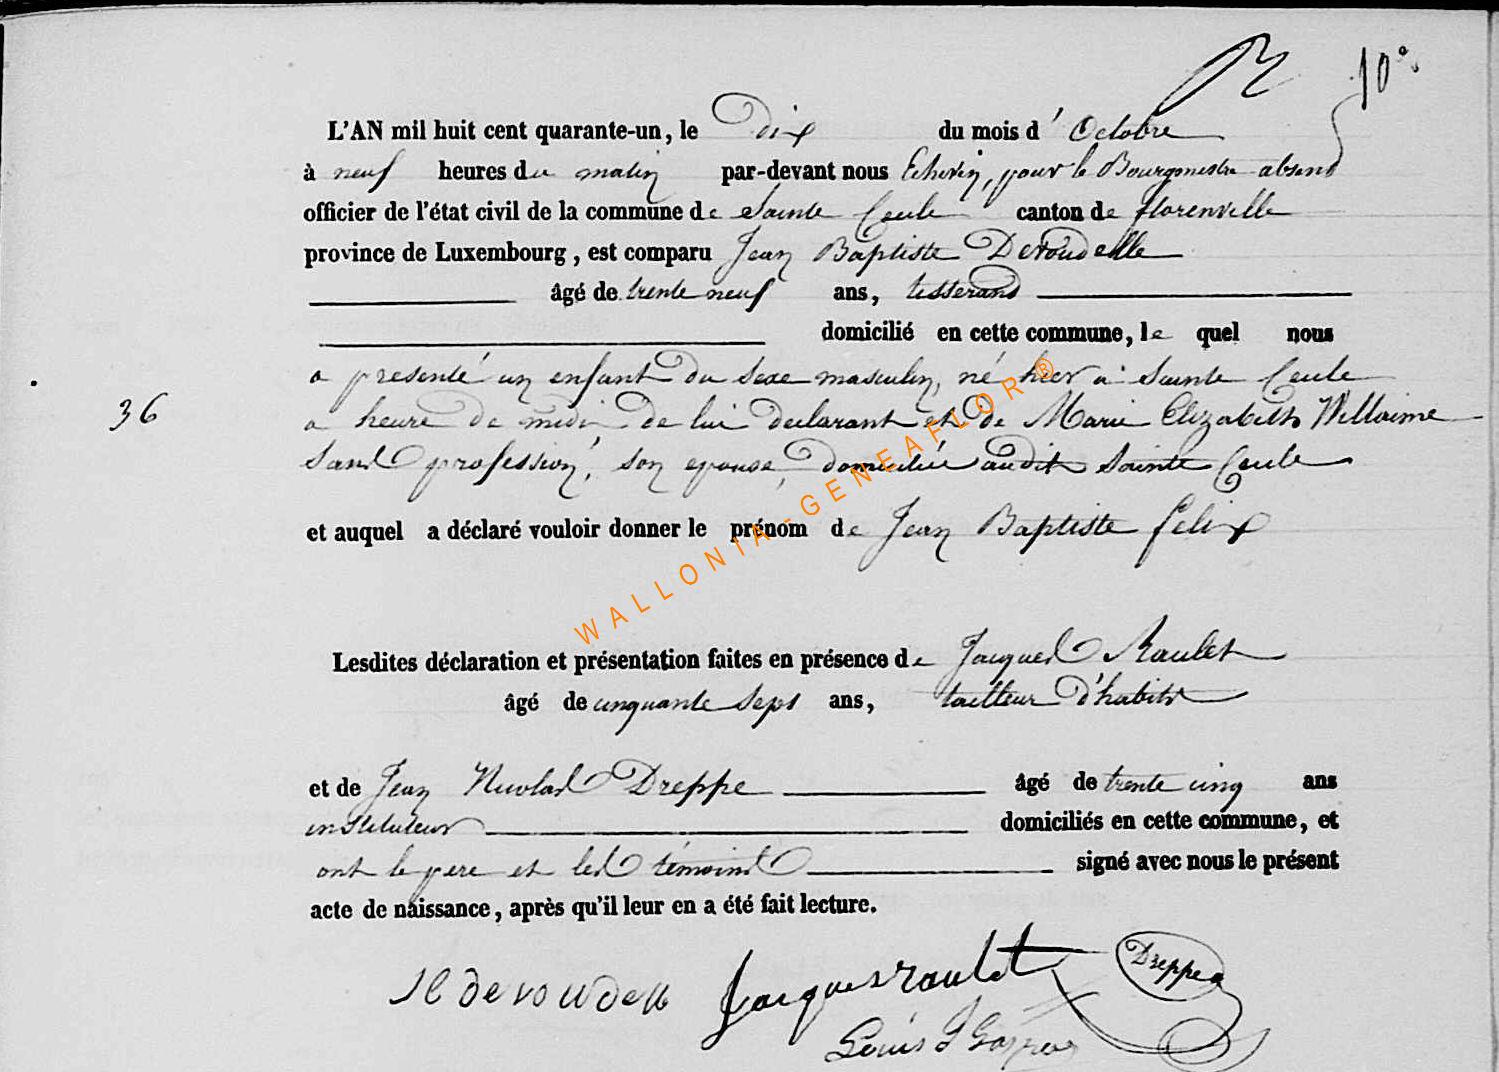 10°
L'AN mil huit cent quarante-un, le Dix du mois d' Octobre
à neuf heures du matin par-devant nous Echevin, pour le Bourgmestre absent
officier de l'état civil de la commune de Sainte Cecile canton de florenville
province de Luxembourg, est comparu Jean Baptiste Devoudelle
âgé de trente neuf ans, tisserand
domicilié en cette commune, le quel nous
a presenté un enfant du sexe masculin, né hier a Sainte Cecile
36
a heure de midi de lui declarant et de Marie Elizabeth Willaime
sans profession, son epouse, domiciliée audit Sainte Cecile
et auquel a déclaré vouloir donner le prénom de Jean Baptiste felix
Lesdites déclaration et présentation faites en présence de Jacques Raulet
âgé de cinquante sept ans, tailleur d'habits
et de Jean Nicolas Dreppe âgé de trente cinq ans
instituteur domiciliés en cette commune, et
ont le pere et les témoins signé avec nous le présent
acte de naissance, après qu'il leur en a été fait lecture.
devoudelle Jacques raulet Dreppe
Louis J
WALLONIA-GENEAFLOR®